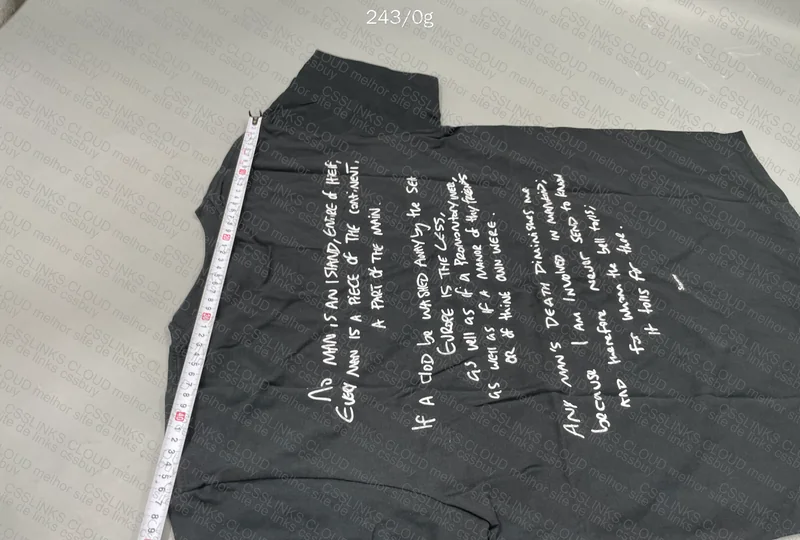 243/0g
No MAN is AN ISLAND, ENTIRE of ITSELF,
EVERY MAN IS A PIECE OF THE CONTINENT,
A PART OF THE MAIN.
If A Clod be WASHED AWAY by the SEA
EUROPE IS THE LESS,
AS well as if A PROMONTORY WERE,
AS WELL AS IF A MANOR of thy friends
OR OF thine own WERE.
ANY MAN'S DEATH DIMINISHES me
because I AM INVOLVED IN MANKIND;
AND therefore NEVER SEND to KNOW
for whom the bell tolls;
it tolls for thee.
CSSLINKS.CLOUD melhor site de links cssbuy